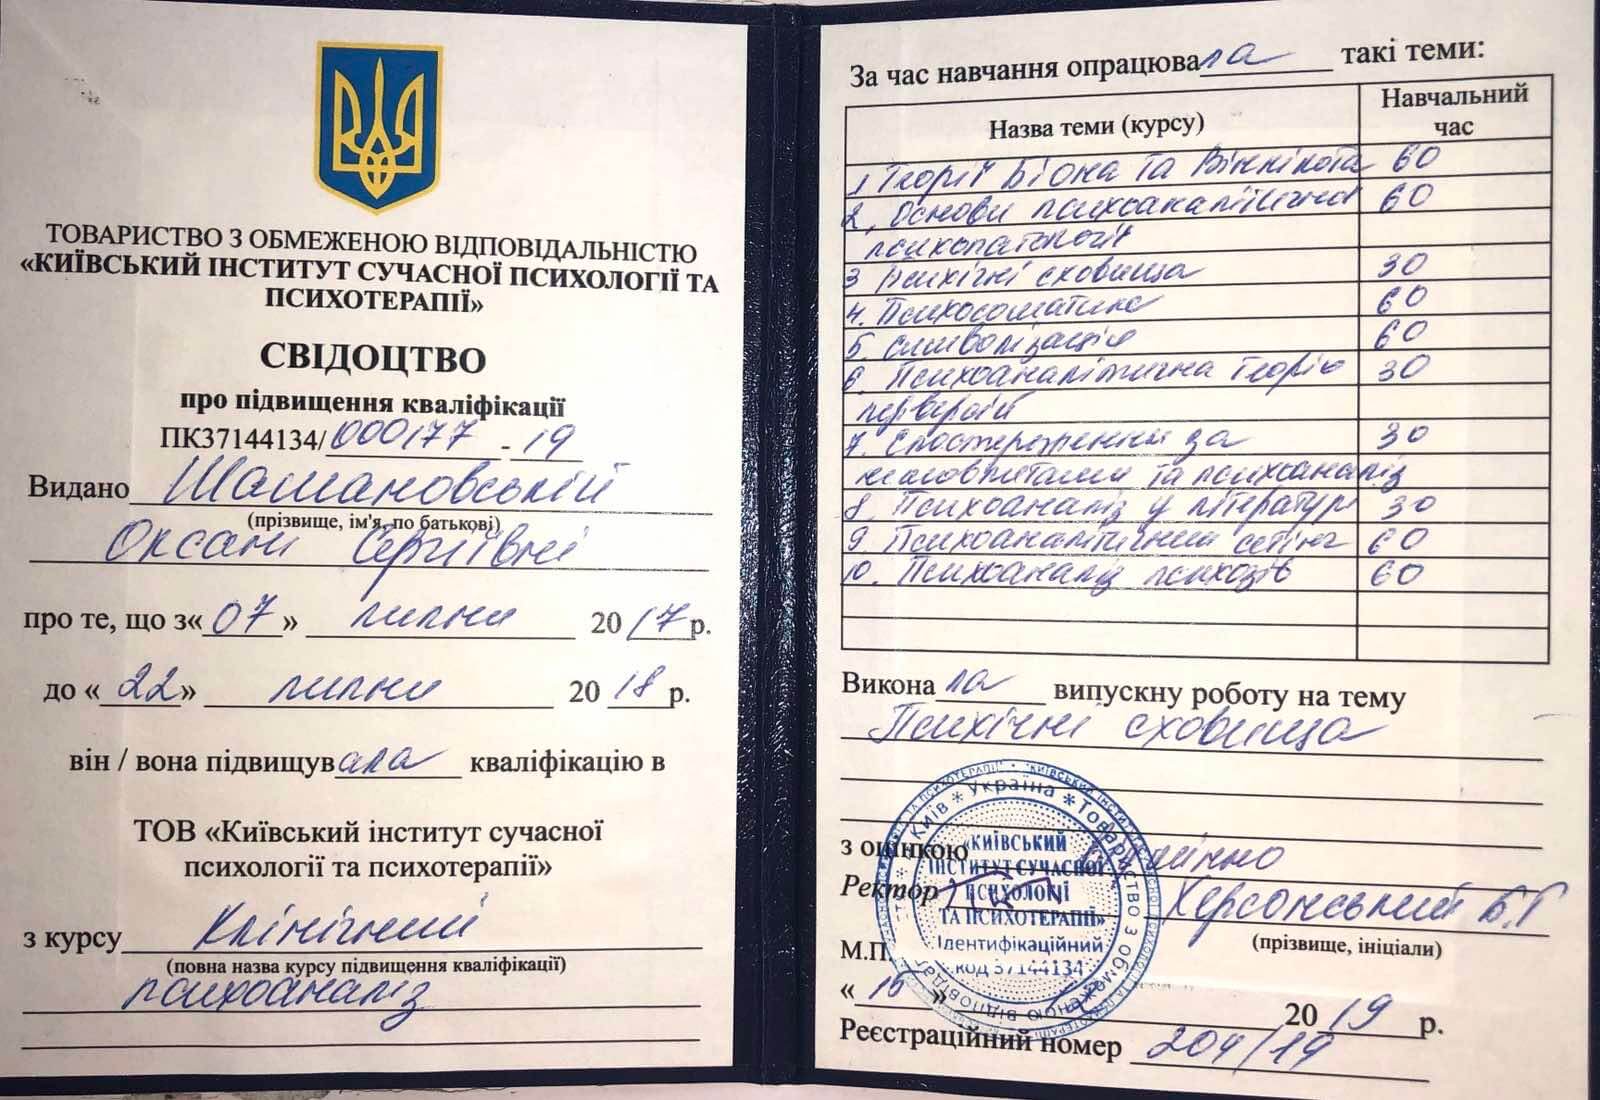 ТОВАРИСТВО З ОБМЕЖЕНОЮ ВІДПОВІДАЛЬНІСТЮ
«КИЇВСЬКИЙ ІНСТИТУТ СУЧАСНОЇ ПСИХОЛОГІЇ ТА
ПСИХОТЕРАПІЇ»
СВІДОЦТВО
про підвищення кваліфікації
ПК37144134/000177-19
Видано Шамановській
(прізвище, ім'я, по батькові)
Оксані Сергіївні
про те, що з «07» липня 2017р.
до «22» липня 2018р.
він / вона підвищувала кваліфікацію в
ТОВ «Київський інститут сучасної
психології та психотерапії»
з курсу Клінічний
(повна назва курсу підвищення кваліфікації)
психоаналіз
За час навчання опрацювала такі теми:
Назва теми (курсу) Навчальний
час
1 Теорії Біона та Віннікота 60
2. Основи психоаналітичної 60
психопатології
3 Психічні сховища 30
4. Психосоматика 60
5. Символізація 60
6. Психоаналітична теорія 30
перверсій
7. Спостереження за 30
немовлятами та психоаналіз
8. Психоаналіз у літературі 30
9. Психоаналітичний сетінг 60
10. Психоаналіз психозів 60
Виконала випускну роботу на тему
Психічні сховища
з оцінкою відмінно
Ректор Херсонський Б.Г
(прізвище, ініціали)
М.П.
«КИЇВСЬКИЙ
ІНСТИТУТ СУЧАСНОЇ
ПСИХОЛОГІЇ
ТА ПСИХОТЕРАПІЇ»
Ідентифікаційний
код 37144134
«15» 2019р.
Реєстраційний номер 204/19